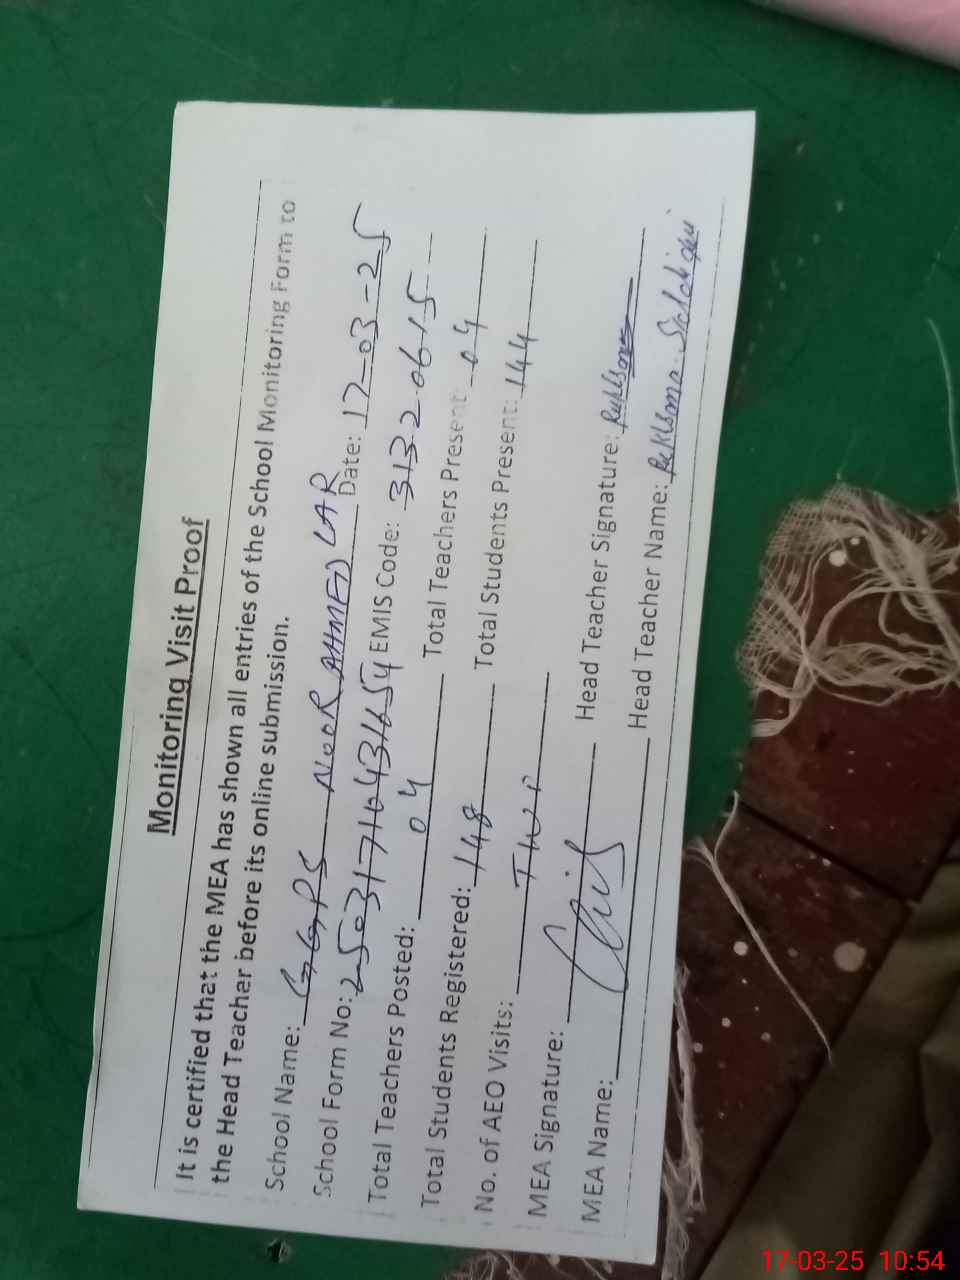 Monitoring Visit Proof
It is certified that the MEA has shown all entries of the School Monitoring Form to
the Head Teacher before its online submission.
School Name: GGPS NOOR AHMED LAR Date: 17-03-25
School Form No: 25031716431654 EMIS Code: 31320615
Total Teachers Posted: 04 Total Teachers Present: 04
Total Students Registered: 148 Total Students Present: 144
No. of AEO Visits: Two
MEA Signature: Head Teacher Signature:
MEA Name: Head Teacher Name:
17-03-25 10:54